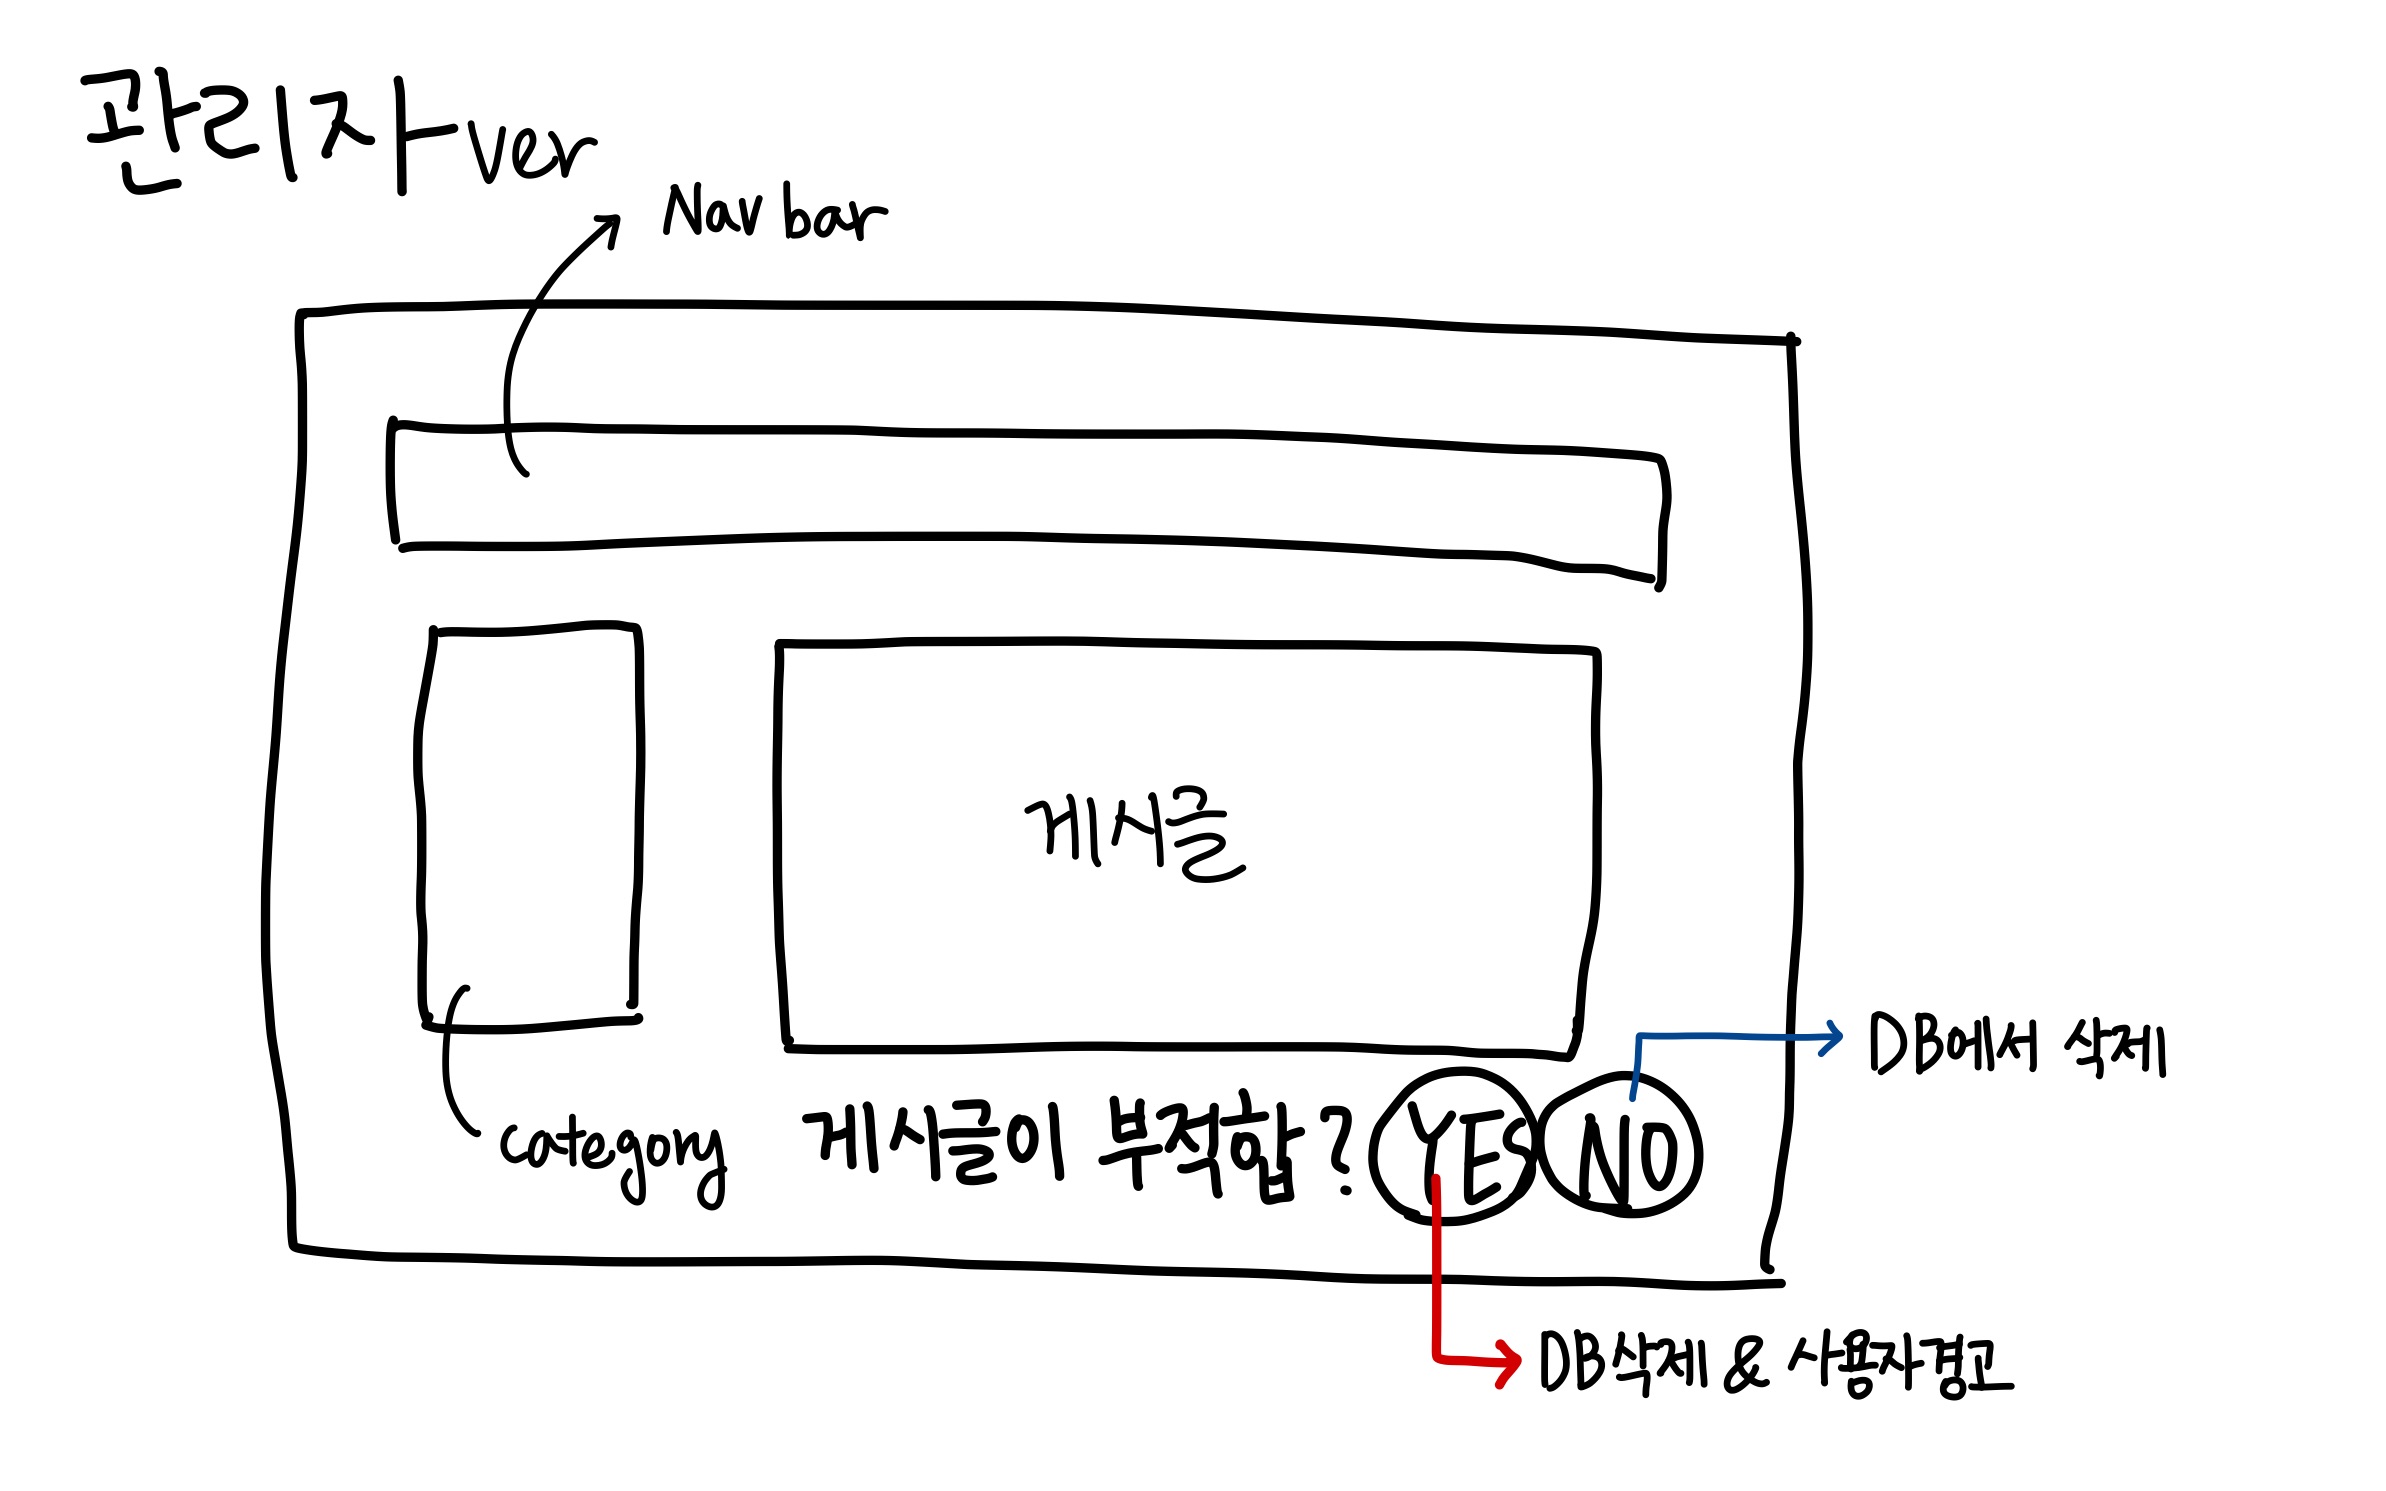 관리자ver
Nav bar
게시글
category
게시글이 부적합?
YES
NO
DB에서 삭제
DB삭제 & 사용자경고